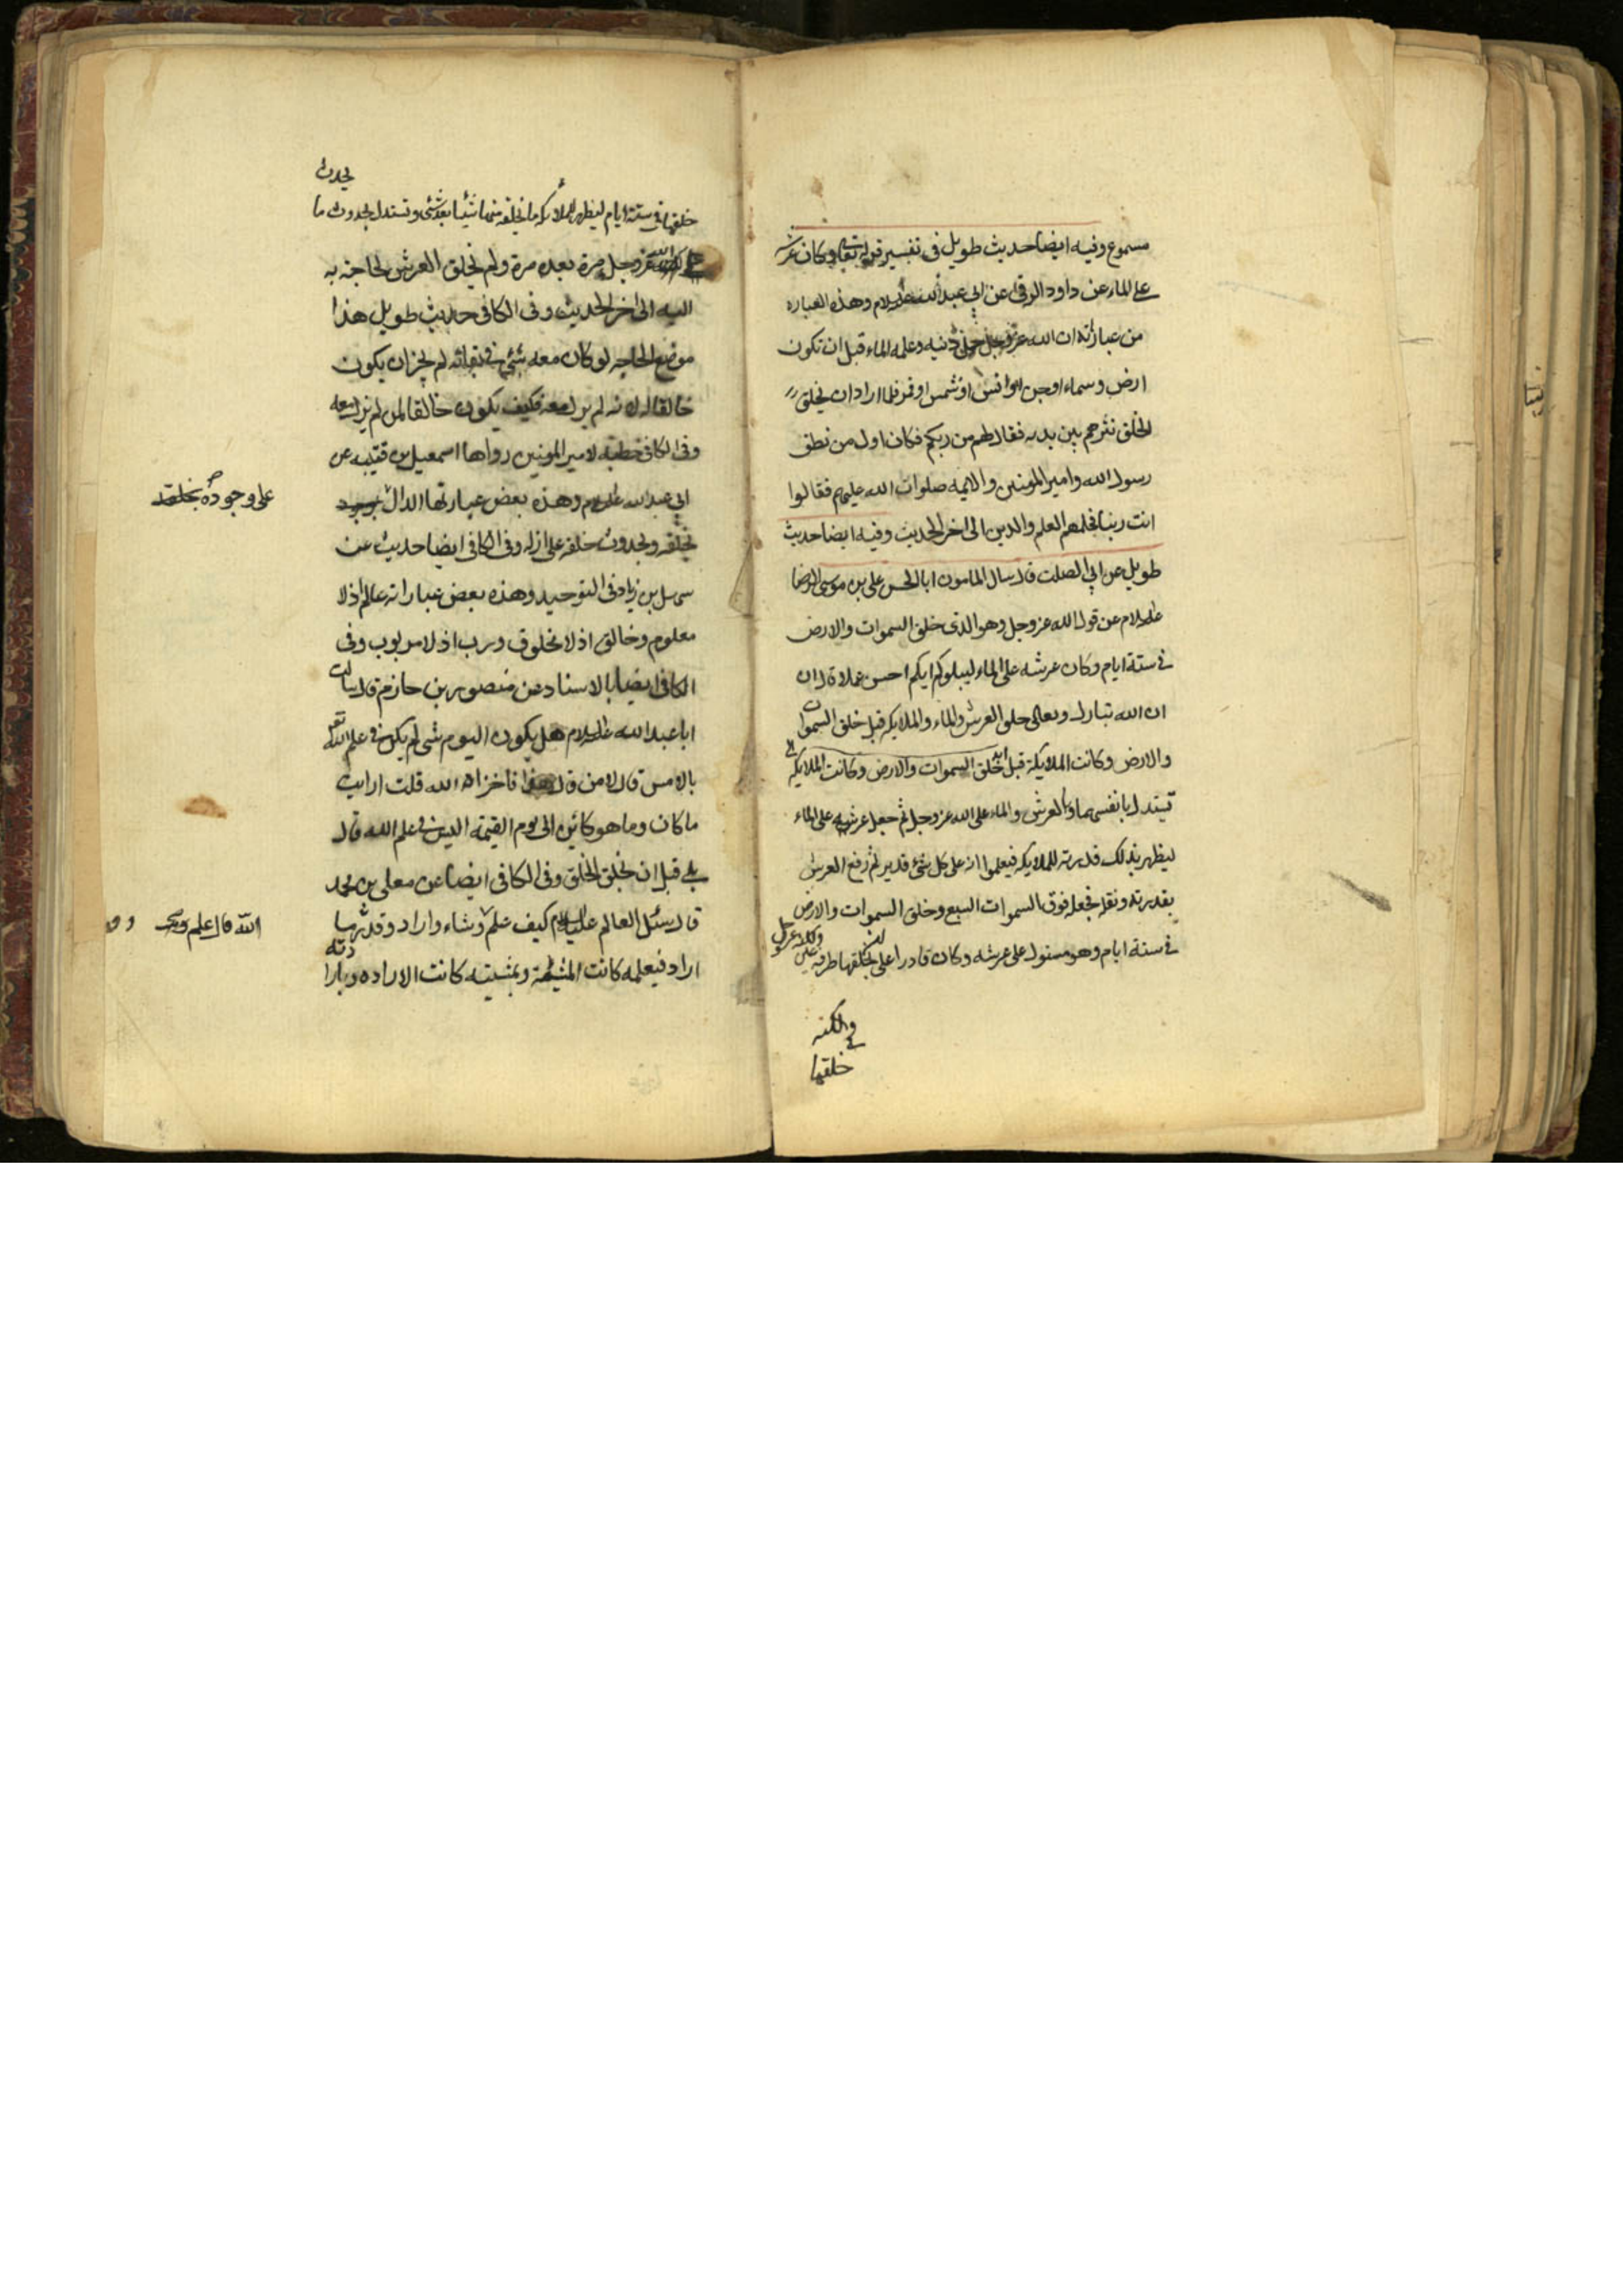 مسموع وفيه ايضا حديث طويل فى تفسير قوله تعالى وكان عرشه
على الماء عن داود الرقى عن ابي عبد الله عليه السلام وهذه العباره
من عباراته ان الله عز وجل حمل دينه وعلمه الماء قبل ان تكون
ارض وسماء او جن او انس او شمس او قمر فلما اراد ان يخلق
الخلق نثرهم بين يديه فقال لهم من ربكم فكان اول من نطق
رسول الله وامير المومنين والائمه صلوات الله عليهم فقالوا
انت ربنا فحملهم العلم والدين الى اخر الحديث وفيه ايضا حديث
طويل عن ابي الصلت قال سال المامون ابا الحسن على بن موسى الرضا
عليه السلام عن قول الله عز وجل وهو الذى خلق السموات والارض
فى ستة ايام وكان عرشه على الماء ليبلوكم ايكم احسن عملا قال ان
ان الله تبارك وتعالى خلق العرش والماء والملايكه قبل خلق السموات
والارض وكانت الملايكة قبل خلق السموات والارض وكانت الملايكه
تستدل بانفسها وبالعرش والماء على الله عز وجل ثم جعل عرشه على الماء
ليظهر بذلك قدرته للملايكه فيعلموا انه على كل شئ قدير ثم رفع العرش
بقدرته ونقله فجعله فوق السموات السبع وخلق السموات والارض
فى ستة ايام وهو مستول على عرشه وكان قادرا على ان يخلقها طرفة عين
ولكنه عز وجل
خلقها
يحدث
خلقها فى ستة ايام ليظهر للملائكه ما يخلقه منها شيئا بعد شئ وتستدل بحدوث ما
على الله عز وجل مرة بعده مرة ولم يخلق العرش لحاجة به
اليه الى اخر الحديث وفى الكافى حديث طويل هذا
موضع الحاجه لو كان معه شئ فى بقائه لم يجز ان يكون
خالقا له لانه لم يزل معه فكيف يكون خالقا لمن لم يزل معه
وفى الكافى خطبة لامير المومنين رواها اسمعيل بن قتيبه عن
ابي عبد الله عليه السلام وهذه بعض عبارتها الدال
على وجوده بخلقه
بخلقه وبحدوث خلقه على ازله وفى الكافى ايضا حديث عن
سهل بن زياد فى التوحيد وهذه بعض عباراته عالم اذ لا
معلوم وخالق اذ لا مخلوق ورب اذ لا مربوب وفى
الكافى ايضا بالاسناد عن منصور بن حازم قال سالت
ابا عبد الله عليه السلام هل يكون اليوم شى لم يكن فى علم الله تعالى
بالامس قال لا من قال هذا فاخزاه الله قلت ارايت
ما كان وما هو كائن الى يوم القيمة اليس فى علم الله قال
بلى قبل ان يخلق الخلق وفى الكافى ايضا عن معلى بن محمد
قال سئل العالم عليه السلام كيف علم وشاء واراد وقدر ما
الله قال علم
اراد فبعلمه كانت المشية وبمشيته كانت الاراده وبارادته